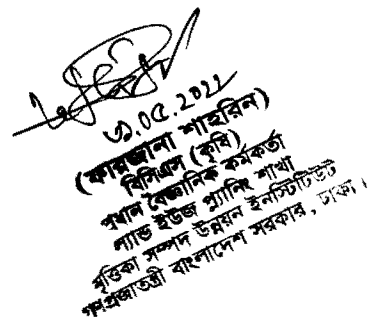 ৩১.০৫.2022
(ফারজানা শাহরিন)
বিসিএস (কৃষি)
প্রধান বৈজ্ঞানিক কর্মকর্তা
ল্যান্ড ইউজ প্ল্যানিং শাখা
মৃত্তিকা সম্পদ উন্নয়ন ইনস্টিটিউট
গণপ্রজাতন্ত্রী বাংলাদেশ সরকার, ঢাকা।